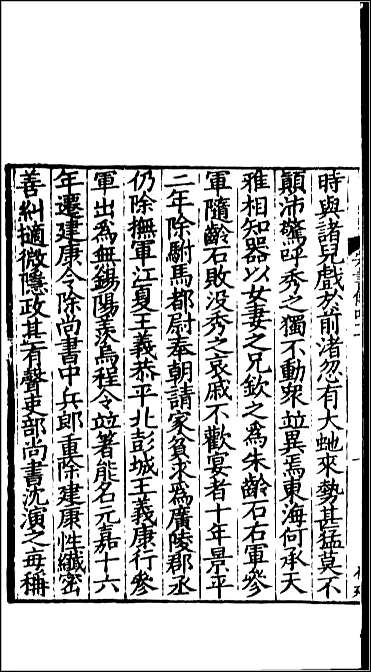 時與諸兒戲於前渚忽有大虵來勢甚猛莫不
顛沛驚呼秀之獨不動衆竝異焉東海何承天
雅相知器以女妻之兄欽之爲朱齡石右軍參
軍隨齡石敗没秀之哀戚不歡宴者十年景平
二年除駙馬都尉奉朝請家貧求爲廣陵郡丞
仍除撫軍江夏王義恭平北彭城王義康行參
軍出爲無錫陽羨烏程令竝著能名元嘉十六
年遷建康令除尚書中兵郎重除建康性纖密
善糾擿微隱政甚有聲吏部尚書沈演之每稱